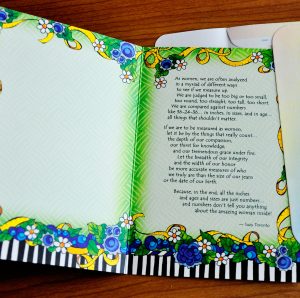 As women, we are often analyzed
in a myriad of different ways
to see if we measure up.
We are judged to be too big or too small,
too round, too straight, too tall, too short.
We are compared against numbers
like 36-24-36... in inches, in sizes, and in age...
all things that shouldn't matter.
If we are to be measured as women,
let it be by the things that really count...
the depth of our compassion,
our thirst for knowledge,
and our tremendous grace under fire.
Let the breadth of our integrity
and the width of our honor
be more accurate measures of who
we truly are than the size of our jeans
or the date of our birth.
Because, in the end, all the inches
and ages and sizes are just numbers...
and numbers don't tell you anything
about the amazing woman inside!
— Suzy Toronto